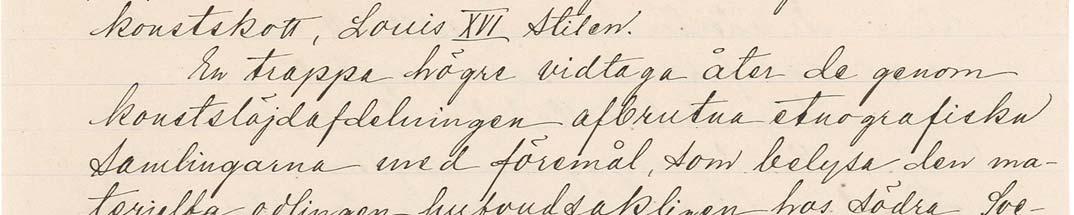 konstskott, Louis XVI stilen.
En trappa högre vidtaga åter de genom
konstslöjdafdelningen afbrutna etnografiska
samlingarna med föremål, som belysa den ma-
teriella odlingen hufvudsakligen hos södra Sve-